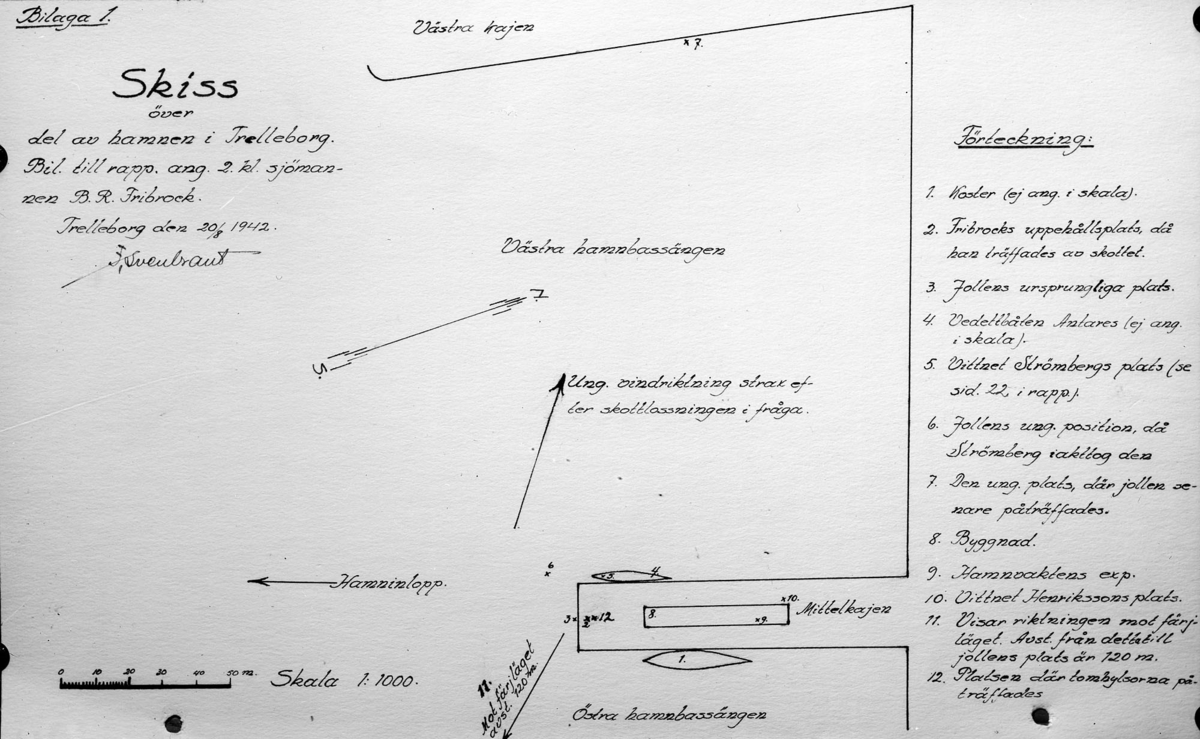 Bilaga 1.
Skiss
över
del av hamnen i Trelleborg.
Bil. till rapp. ang. 2. kl. sjöman-
nen B. R. Fribrock.
Trelleborg den 20/8 1942.
Västra kajen
x 7.
Västra hamnbassängen
N.
S.
Ung. vindriktning strax ef-
ter skottlossningen i fråga.
Hamninlopp.
6
x
x5.
4.
3x
x12
8.
x10.
x9.
Mittelkajen
1.
11.
Mot färjläget
avst. 120 m.
Östra hamnbassängen
0 10 20 30 40 50 m.
Skala 1:1000.
Förteckning:
1. Koster (ej ang. i skala).
2. Fribrocks uppehållsplats, då
han träffades av skottet.
3. Jollens ursprungliga plats.
4. Vedettbåten Antares (ej ang.
i skala).
5. Vittnet Strömbergs plats (se
sid. 22, i rapp.).
6. Jollens ung. position, då
Strömberg iakttog den
7. Den ung. plats, där jollen se-
nare påträffades.
8. Byggnad.
9. Hamnvaktens exp.
10. Vittnet Henrikssons plats.
11. Visar riktningen mot färj-
läget. Avst. från detta till
jollens plats är 120 m.
12. Platsen där tomhylsorna på-
träffades